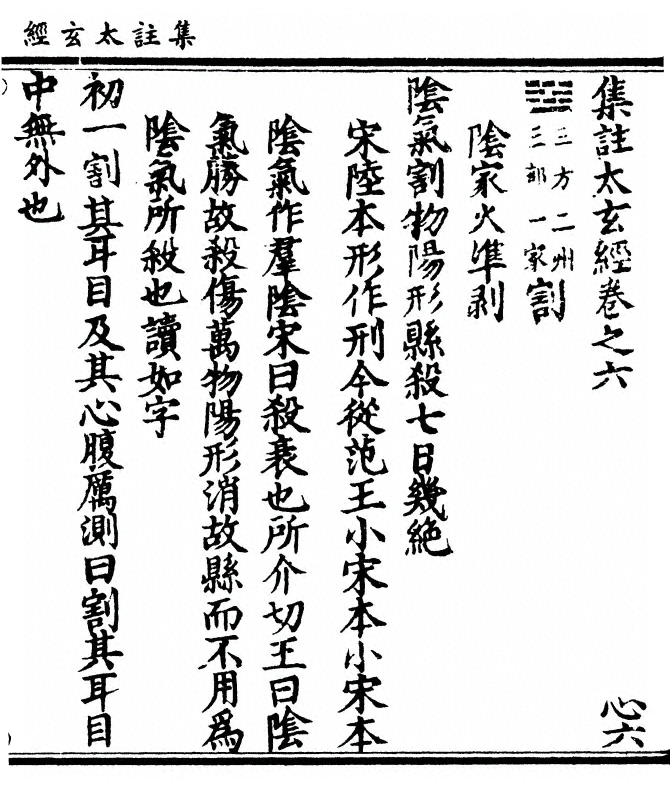 集註太玄經
集註太玄經卷之六 心六
三方二州
三部一家
割
陰家火準剥
陰氣割物陽形縣殺七日幾絶
宋陸本形作刑今從范王小宋本小宋本
陰氣作羣陰宋曰殺衰也所介切王曰陰
氣勝故殺傷萬物陽形消故縣而不用爲
陰氣所殺也讀如字
初一割其耳目及其心腹厲測曰割其耳目
中無外也